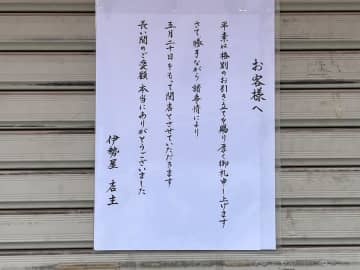 お客様へ
平素は格別のお引き立てを賜り厚く御礼申し上げます
さて勝手ながら諸事情により
五月二十日をもって閉店とさせていただきます
長い間のご愛顧 本当にありがとうございました
伊勢屋 店主